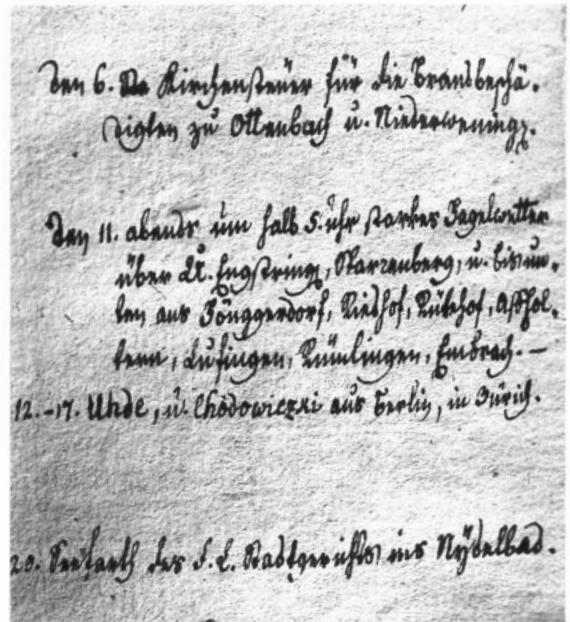 Den 6. Kirchensteuer für die Brandbeschä-
digten zu Ottenbach u. Niederwening.
Den 11. abends um halb 5. uhr starkes Hagelwetter
über U. Engstring, Sparrenberg, u. bis un-
ten aus Hönggerdorf, Riedhof, Rütihof, Affhol-
tern, Lufingen, Rümlingen, Embrach. —
12.-17. Uhde, u. Chodowiezki aus Berlin, in Zürich.
20. Seefarth des Stadtgerichts ins Nydelbad.